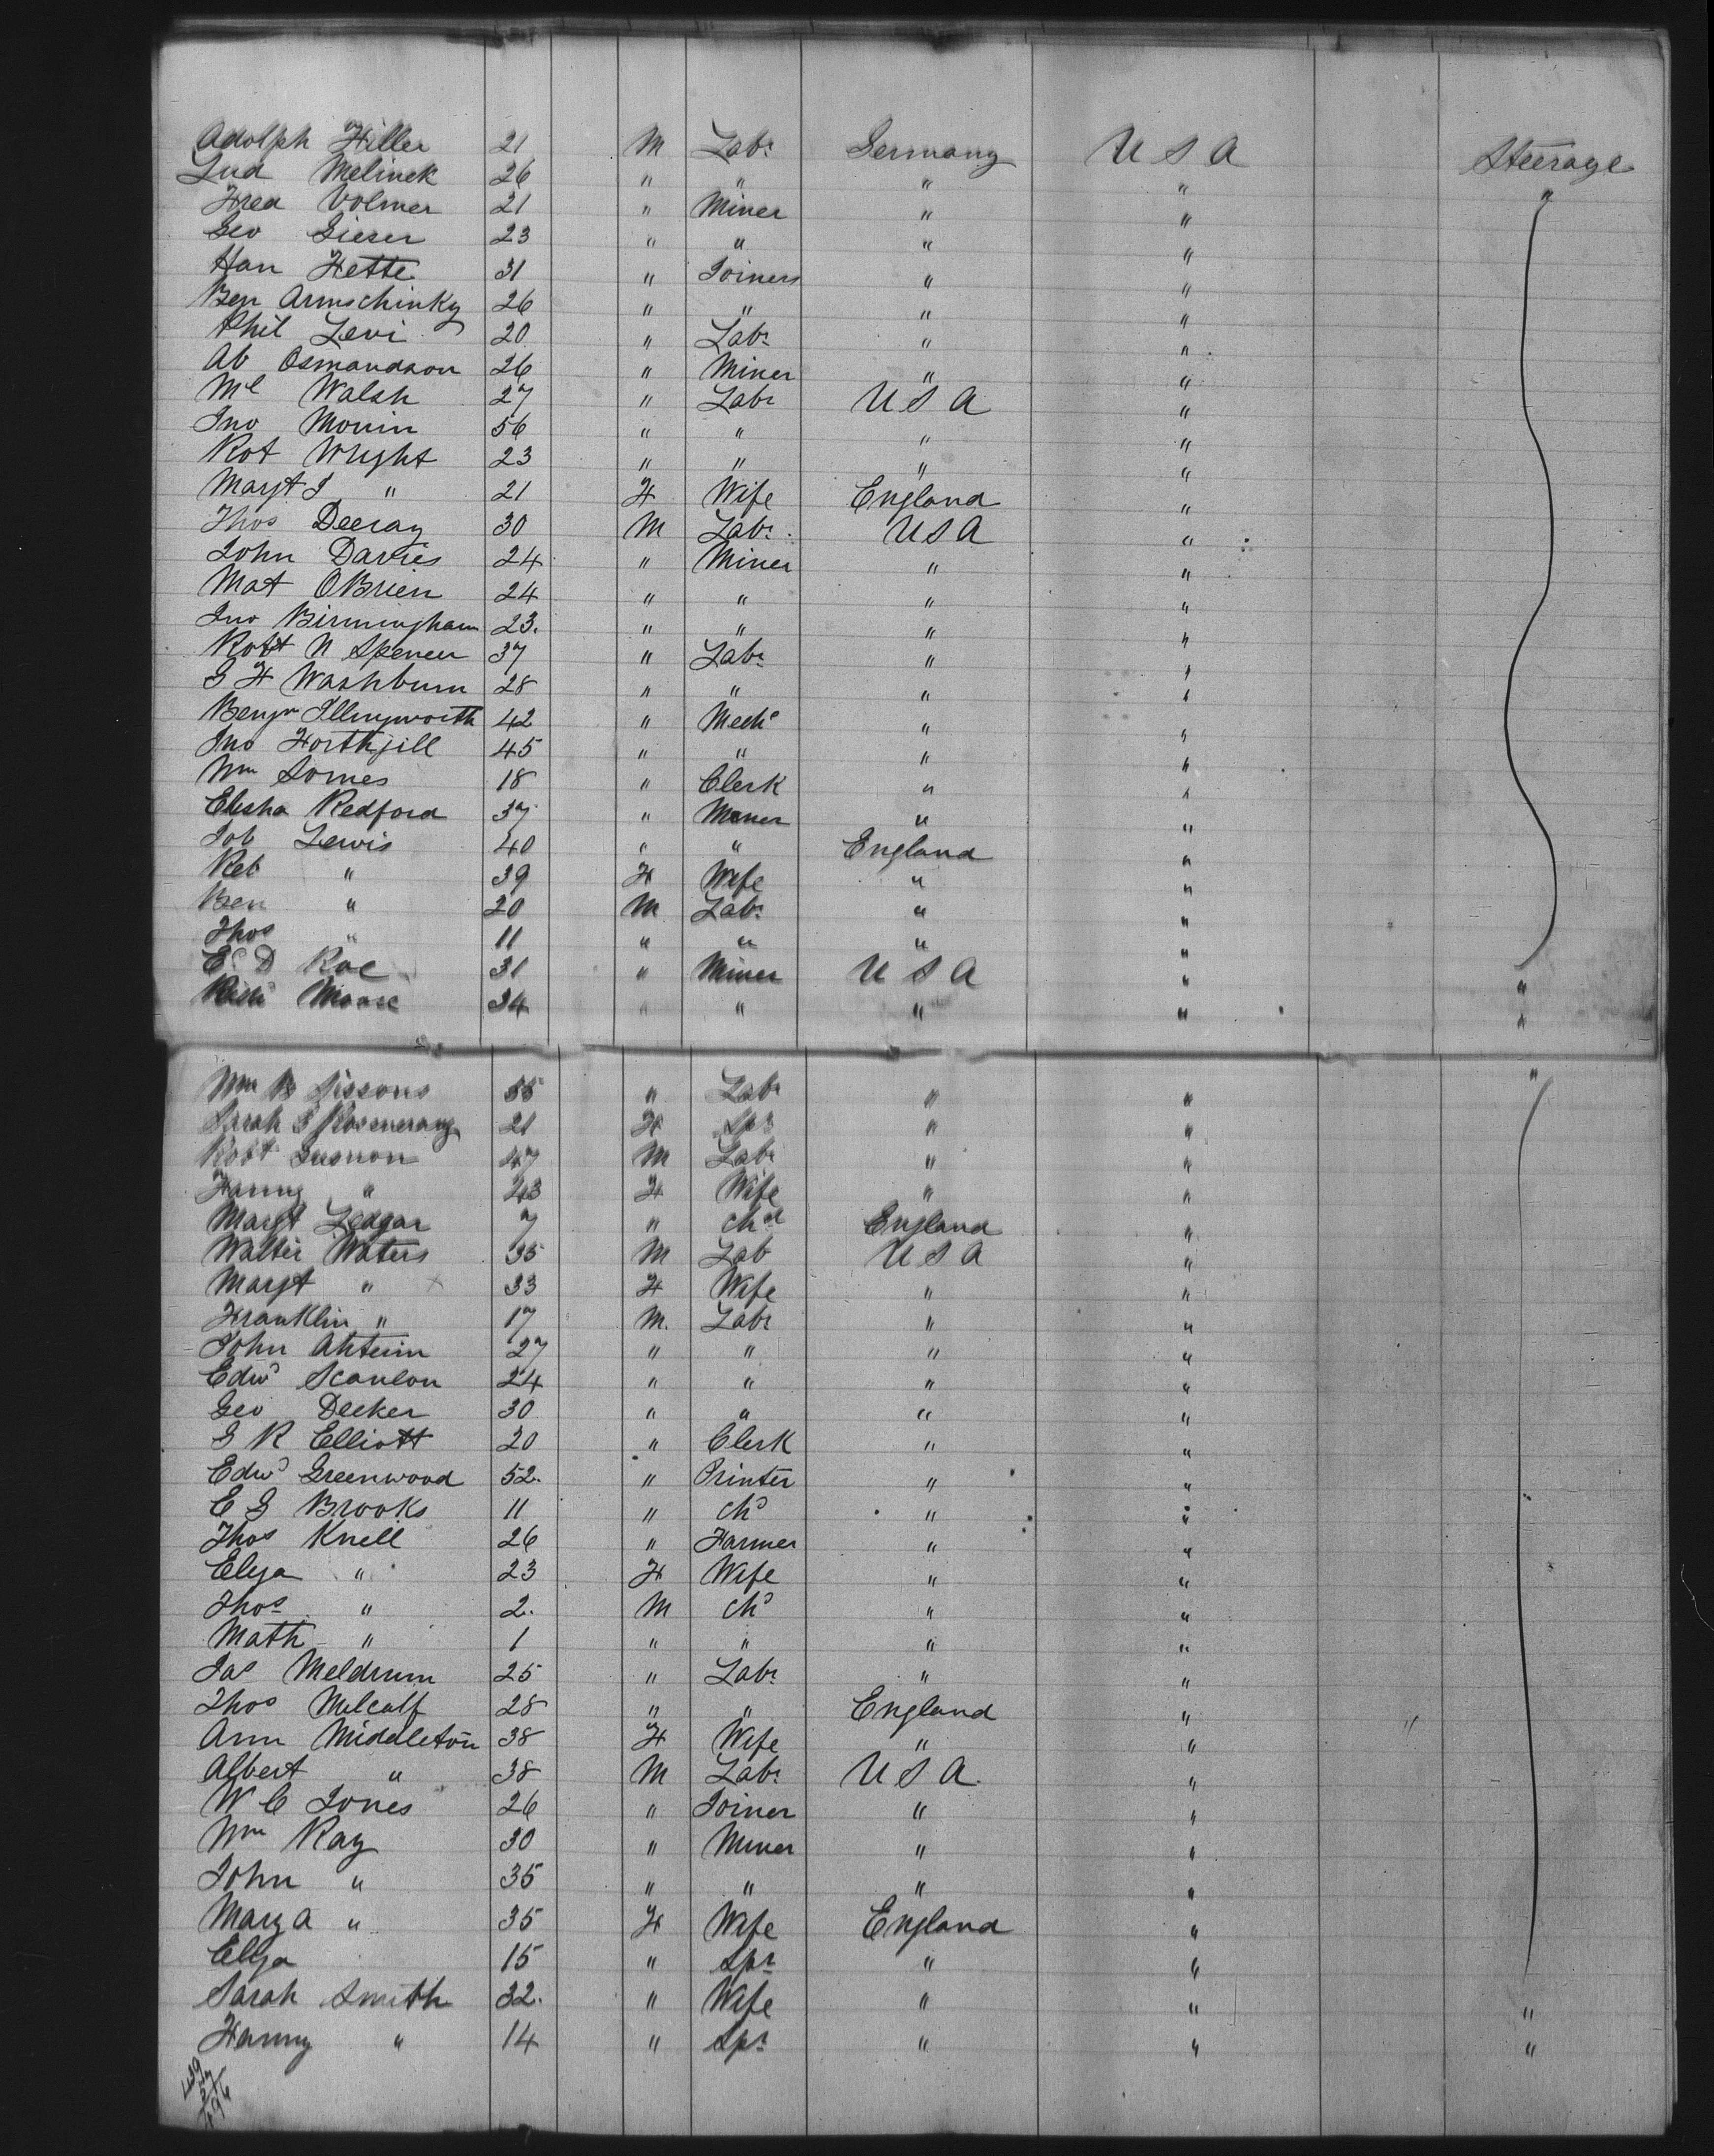 Adolph Hiller 21 M Labr Germany U S A Steerage
Lud Melinek 26 " " " " "
Fred Volmer 21 " Miner " "
Geo Gieser 23 " " " "
Han Fette 31 " Joiners " "
Ben Armschinky 26 " " " "
Phil Levi 20 " Labr " "
Ab Osmandson 26 " Miner " "
Ml Walsh 27 " Labr U S A "
Jno Monin 56 " " " "
Rot Wright 23 " " " "
Margt J " 21 F Wife England "
Thos Deeray 30 M Labr U S A "
John Davies 24 " Miner " "
Mat OBrien 24 " " " "
Jno Birmingham 23. " " " "
Robt N Spencer 37 " Labr " "
G F Washburn 28 " " " "
Benjn Illingworth 42 " Mechc " "
Jno Forthjill 45 " " " "
Wm Somes 18 " Clerk " "
Elisha Redford 37 " Miner " "
Job Lewis 40 " " England "
Reb " 39 F Wife " "
Ben " 20 M Labr " "
Thos " 11 " " " "
E D Roe 31 " Miner U S A " "
Moore 34 " " " " "
Wm B Sissons 55 " Labr " " "
Sarah 21 F Spr " "
Robt 47 M Labr " "
Fanny " 43 F Wife " "
Margt Ledgar 7 " chd England "
Walter Waters 35 M Lab U S A "
Margt " 33 F Wife " "
Franklin " 17 M. Labr " "
John Ahterin 27 " " " "
Edwd Scanlon 24 " " " "
Geo Decker 30 " " " "
G R Elliott 20 " Clerk " "
Edwd Greenwood 52. " Printer " "
E G Brooks 11 " chd " "
Thos Knell 26 " Farmer " "
Eliza " 23 F Wife " "
Thos " 2. M chd " "
Math " 1 " " " "
Jas Meldrum 25 " Labr " "
Thos Melcalf 28 " " England "
Ann Middleton 38 F Wife " "
Albert " 38 M Labr U S A. "
W C Jones 26 " Joiner " "
Wm Ray 30 " Miner " "
John " 35 " " " "
Mary A " 35 F Wife England "
Eliza 15 " Spr " "
Sarah Smith 32. " Wife " " "
Fanny " 14 " Spr " " "